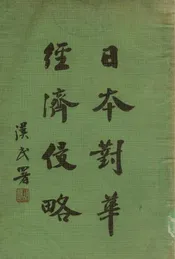 日本對華
經濟侵略
漢民署